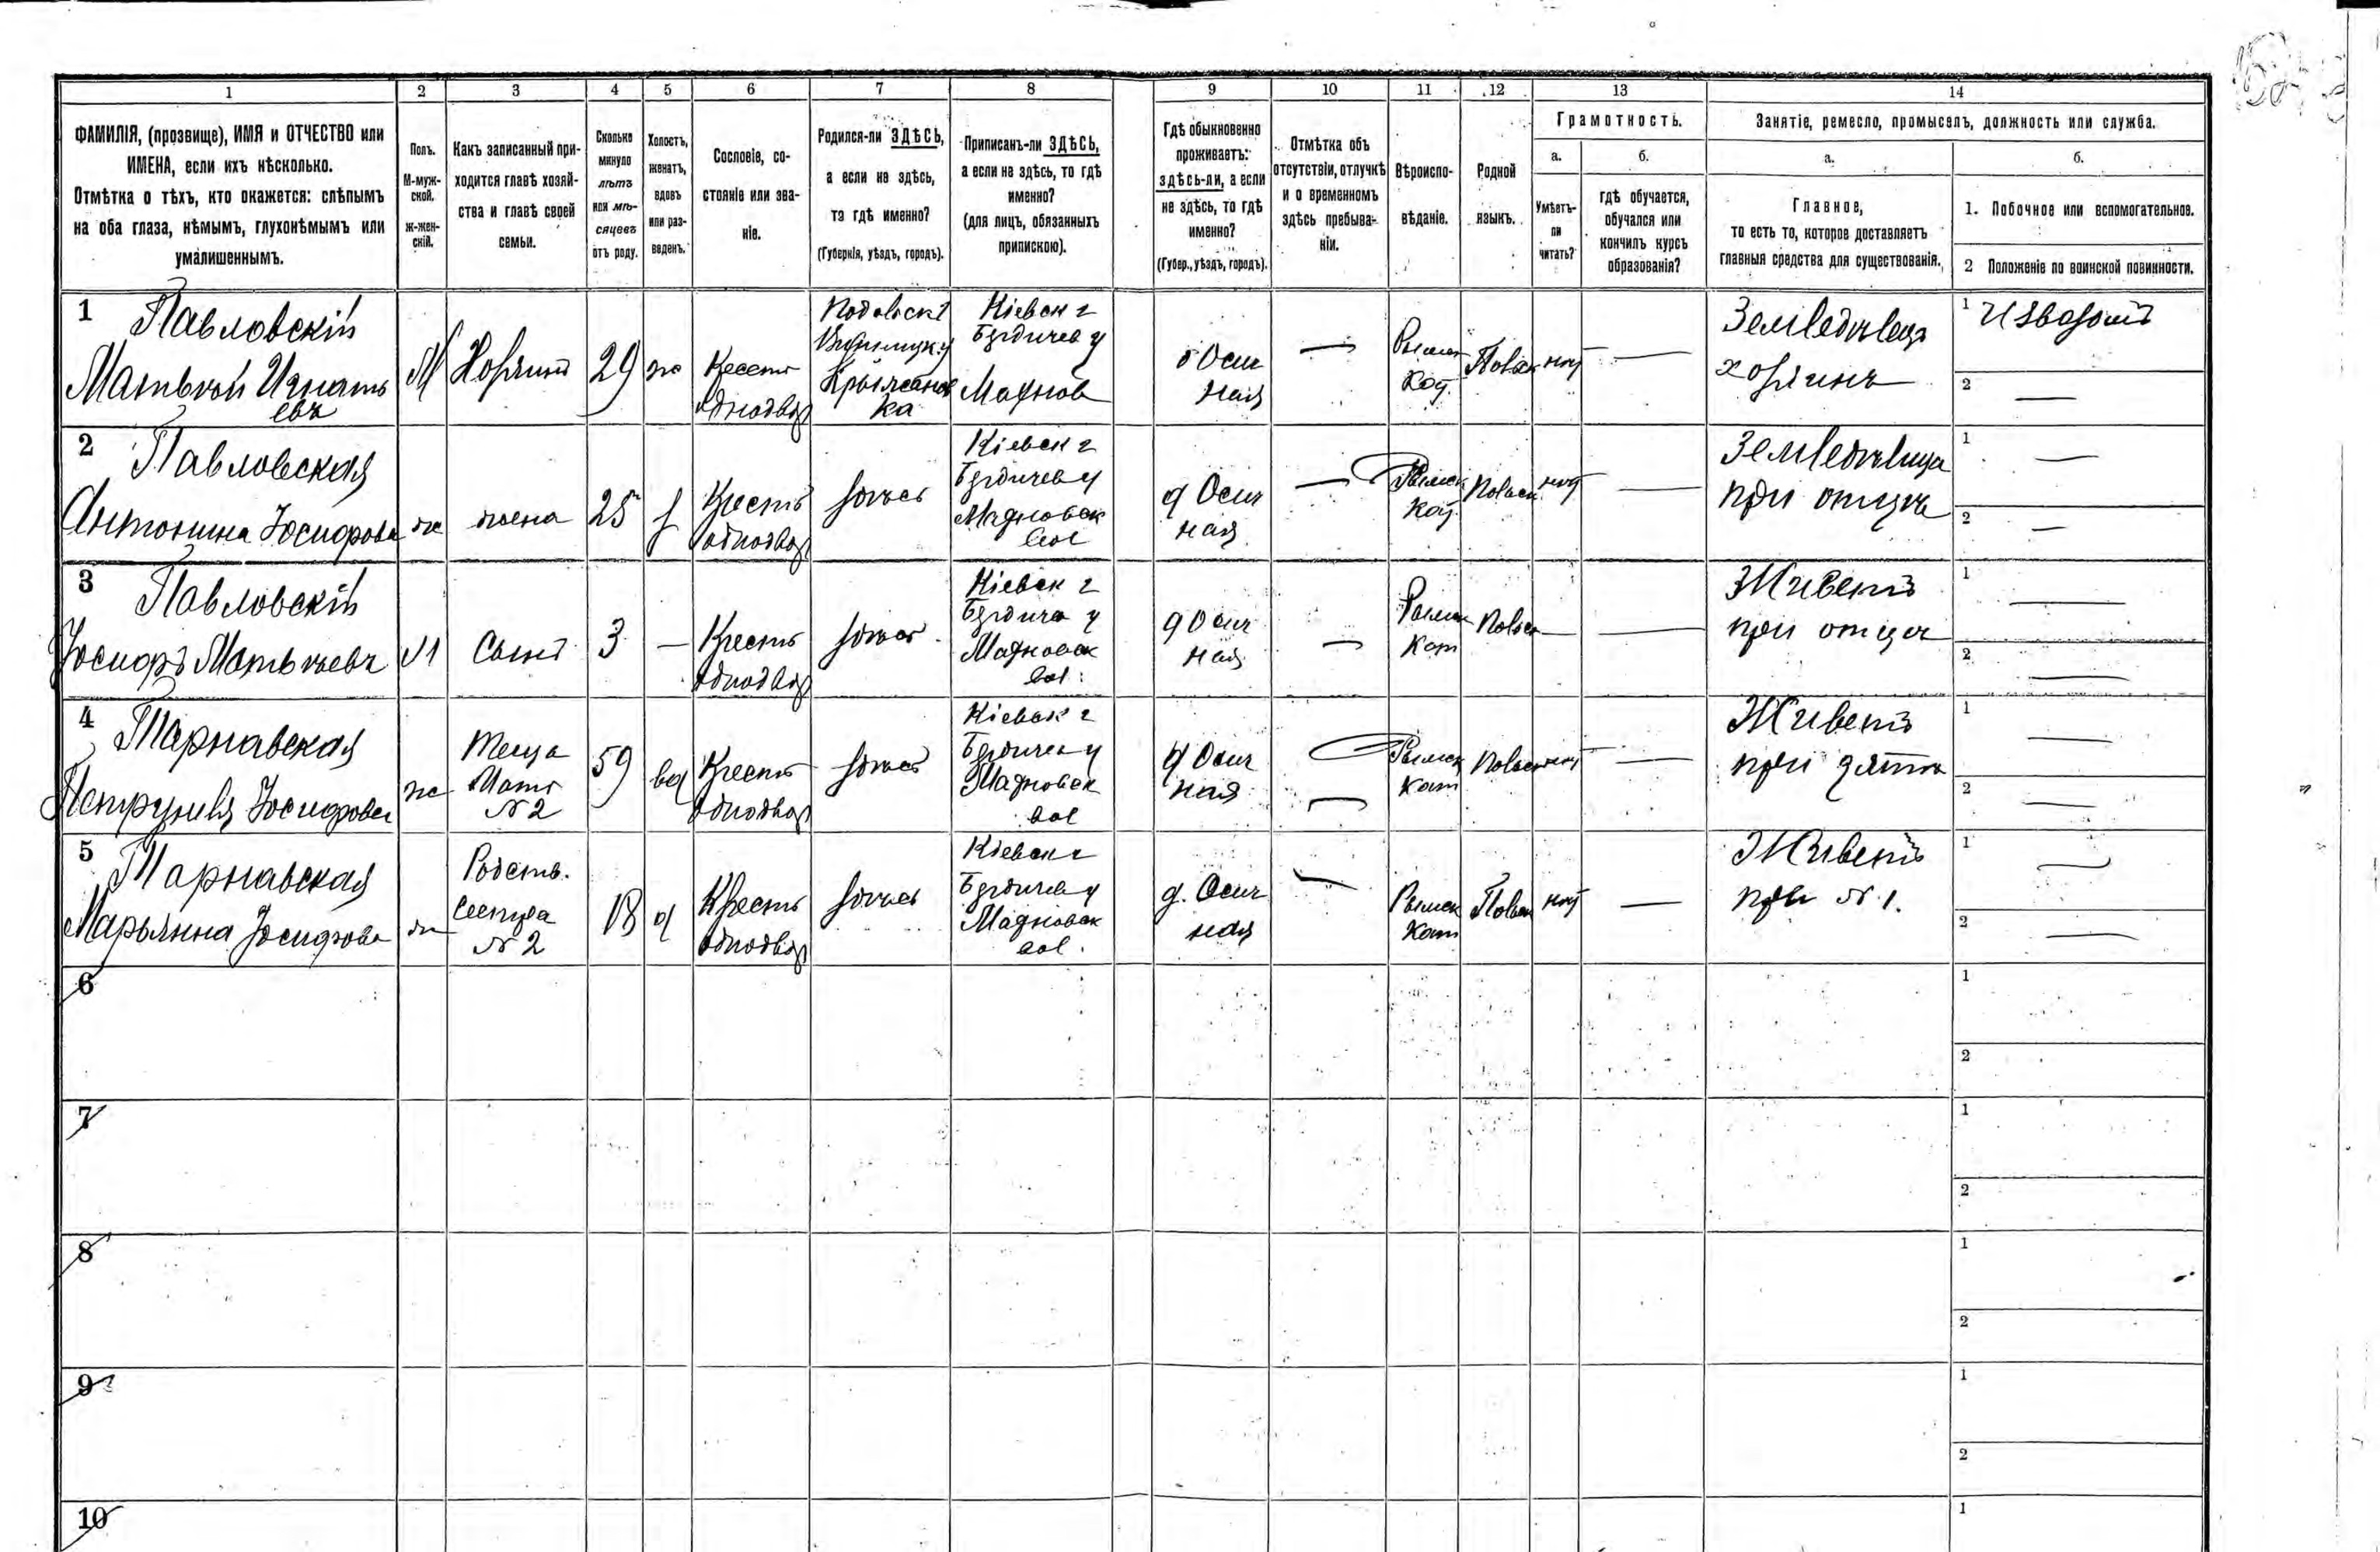 1 2 3 4 5 6 7 8 9 10 11 12 13 14
ФАМИЛІЯ, (прозвище), ИМЯ и ОТЧЕСТВО или
ИМЕНА, если ихъ нѣсколько.
Отмѣтка о тѣхъ, кто окажется: слѣпымъ
на оба глаза, нѣмымъ, глухонѣмымъ или
умалишеннымъ.
Полъ.
М-муж-
ской.
ж-жен-
скій.
Какъ записанный при-
ходится главѣ хозяй-
ства и главѣ своей
семьи.
Сколько
минуло
лѣтъ
или мѣ-
сяцевъ
отъ роду.
Холостъ,
женатъ,
вдовъ
или раз-
веденъ.
Сословіе, со-
стояніе или зва-
ніе.
Родился-ли ЗДѢСЬ,
а если не здѣсь,
то гдѣ именно?
(Губернія, уѣздъ, городъ).
Приписанъ-ли ЗДѢСЬ,
а если не здѣсь, то гдѣ
именно?
(для лицъ, обязанныхъ
припискою).
Гдѣ обыкновенно
проживаетъ:
здѣсь-ли, а если
не здѣсь, то гдѣ
именно?
(Губер., уѣздъ, городъ).
Отмѣтка объ
отсутствіи, отлучкѣ
и о временномъ
здѣсь пребыва-
ніи.
Вѣроиспо-
вѣданіе.
Родной
языкъ.
Грамотность.
а.
Умѣетъ-
ли
читать?
б.
гдѣ обучается,
обучался или
кончилъ курсъ
образованія?
Занятіе, ремесло, промыселъ, должность или служба.
а.
Главное,
то есть то, которое доставляетъ
главныя средства для существованія.
б.
1. Побочное или вспомогательное.
2 Положеніе по воинской повинности.
1 Павловскій
Матьвѣй Игнать
евъ
М
29
Кіевск г
Бердичев у
Махнов
Римск
Землѣдѣлецъ
хозяинъ
1
2
2 Павловская
Антонина Іосифова
жена
25
Крестъ
однодвор
здѣсь
Кіевск г
Бердичев у
Махновск
вол
д Осич
ная
Римск
Кат
Польск
при отцѣ
1
2
3 Павловскій
Іосифъ Матьвѣевъ
М
Сынъ
3
Крестъ
однодвор
здѣсь
Кіевск г
Бердичев у
Махновск
вол.
д Осич
ная
Римск
Кат
Польск
Живетъ
при отцѣ
1
2
4 Тарнавская
Петрунеля Іосифова
ж
Теща
Мать
№ 2
59
вд
Крестъ
однодвор
здѣсь
Кіевск г
Бердичев у
Махновск
вол
д Осич
ная
Римск
Кат
Польск
Живетъ
при зятѣ
1
2
5 Тарнавская
Марьянна Іосифова
Родств.
Сестра
№ 2
18
д
Крестъ
однодвор
здѣсь
Кіевск г
Бердичев у
Махновск
вол.
д. Осич
ная
Римск
Кат
Польск
Живетъ
при № 1.
1
2
6
1
2
7
1
2
8
1
2
9
1
2
10
1